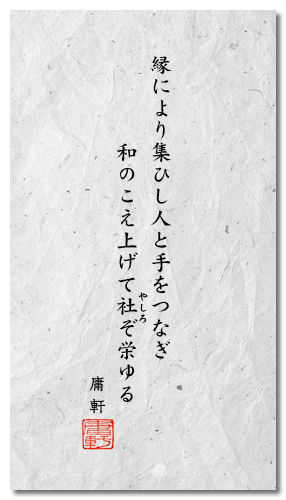 縁により集ひし人と手をつなぎ
和のこえ上げて社ぞ栄ゆる
やしろ
庸軒